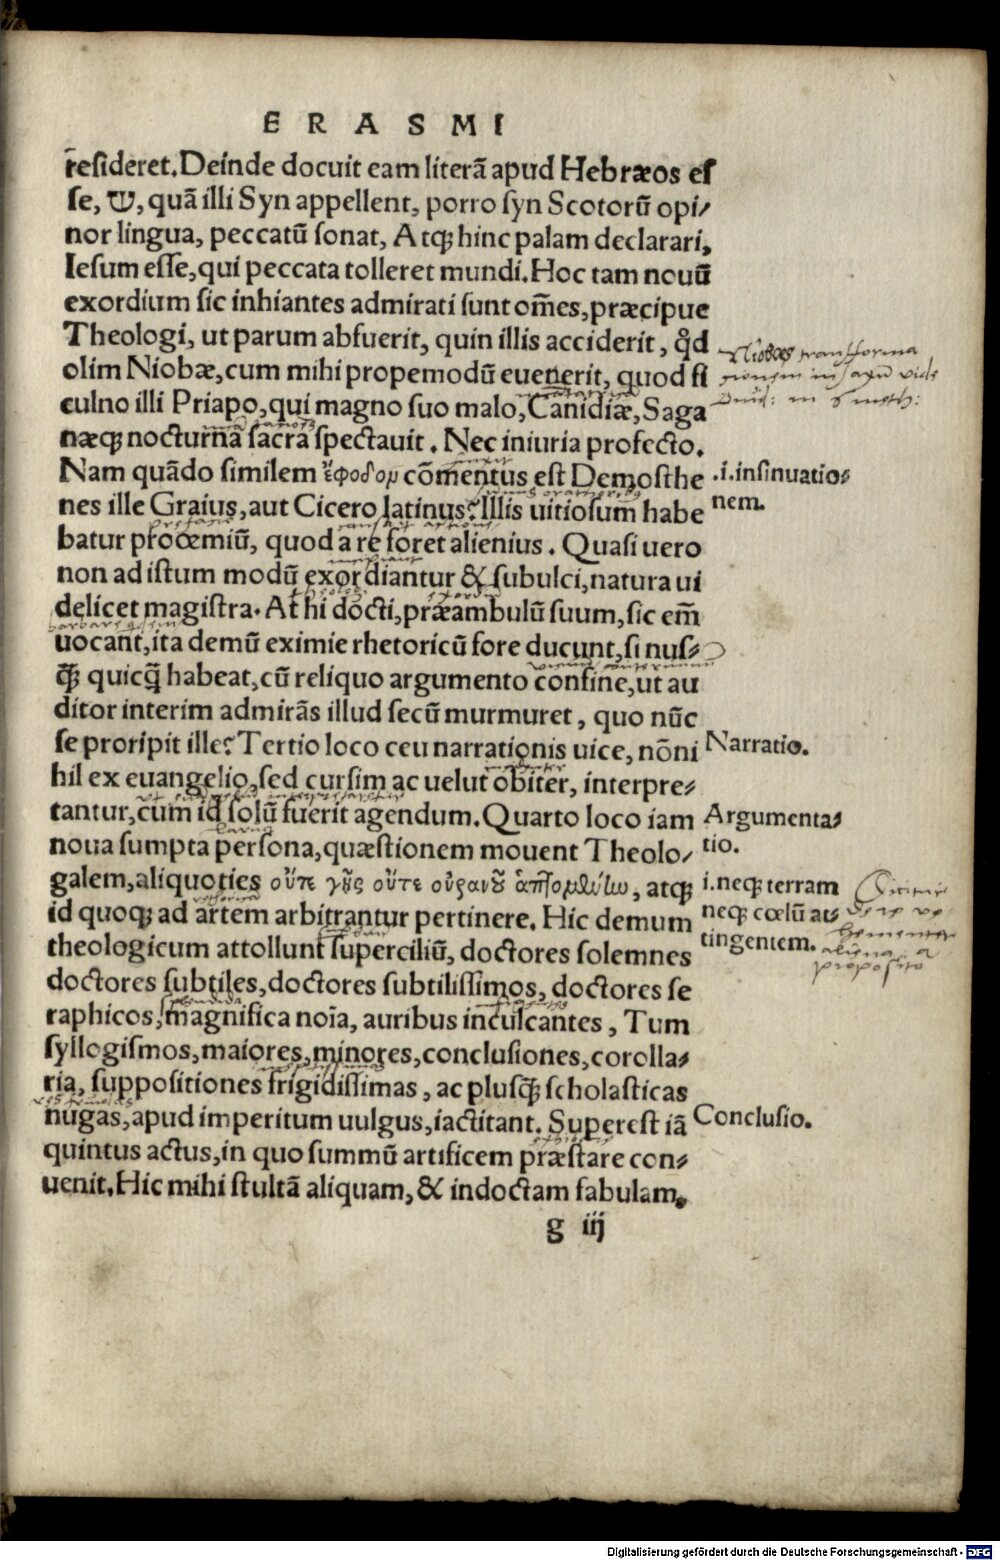 ERASMI
resideret. Deinde docuit eam literã apud Hebræos es
se, ש, quã illi Syn appellent, porro syn Scotorũ opi⸗
nor lingua, peccatũ sonat, Atqꝫ hinc palam declarari,
Iesum esse, qui peccata tolleret mundi. Hoc tam nouũ
exordium sic inhiantes admirati sunt om̃es, præcipue
Theologi, ut parum abfuerit, quin illis acciderit, qd̓
olim Niobæ, cum mihi propemodũ euenerit, quod fi
culno illi Priapo, qui magno suo malo, Canidiæ, Saga
næqꝫ nocturna sacra spectauit. Nec iniuria profecto.
Nam quãdo similem ἔφοδον cõmentus est Demosthe
nes ille Graius, aut Cicero latinus? Illis uitiosum habe
batur prooemiũ, quod a re foret alienius. Quasi uero
non ad istum modũ exordiantur & subulci, natura ui
delicet magistra. At hi docti, præambulũ suum, sic em̃
uocant, ita demũ eximie rhetoricũ fore ducunt, si nus⸗
q̃ꝫ quicq̃ habeat, cũ reliquo argumento confine, ut au
ditor interim admirãs illud secũ murmuret, quo nũc
se proripit ille? Tertio loco ceu narrationis uice, nõni
hil ex euangelio, sed cursim ac uelut obiter, interpre⸗
tantur, cum id solũ fuerit agendum. Quarto loco iam
noua sumpta persona, quæstionem mouent Theolo⸗
galem, aliquoties οὔτε γῆς οὔτε οὐρανοῦ ἁπτομένην, atqꝫ
id quoqꝫ ad artem arbitrantur pertinere. Hic demum
theologicum attollunt superciliũ, doctores solemnes
doctores subtiles, doctores subtilissimos, doctores se
raphicos, magnifica noĩa, auribus inculcantes, Tum
syllogismos, maiores, minores, conclusiones, corolla⸗
ria, suppositiones frigidissimas, ac plusq̃ꝫ scholasticas
nugas, apud imperitum uulgus, iactitant. Superest iã
quintus actus, in quo summũ artificem præstare con⸗
uenit. Hic mihi stultã aliquam, & indoctam fabulam,
g iij
Niobes transforma
tionem in saxũ vide
Ouid: in 6 meth:
.i. insinuatio⸗
nem.
Narratio.
Argumenta⸗
tio.
i. neqꝫ terram
neqꝫ cœlũ at⸗
tingentem.
aliena a
proposito
Conclusio.
Digitalisierung gefördert durch die Deutsche Forschungsgemeinschaft - DFG